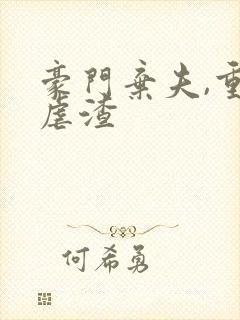 豪門棄夫,重
虐渣
何希勇